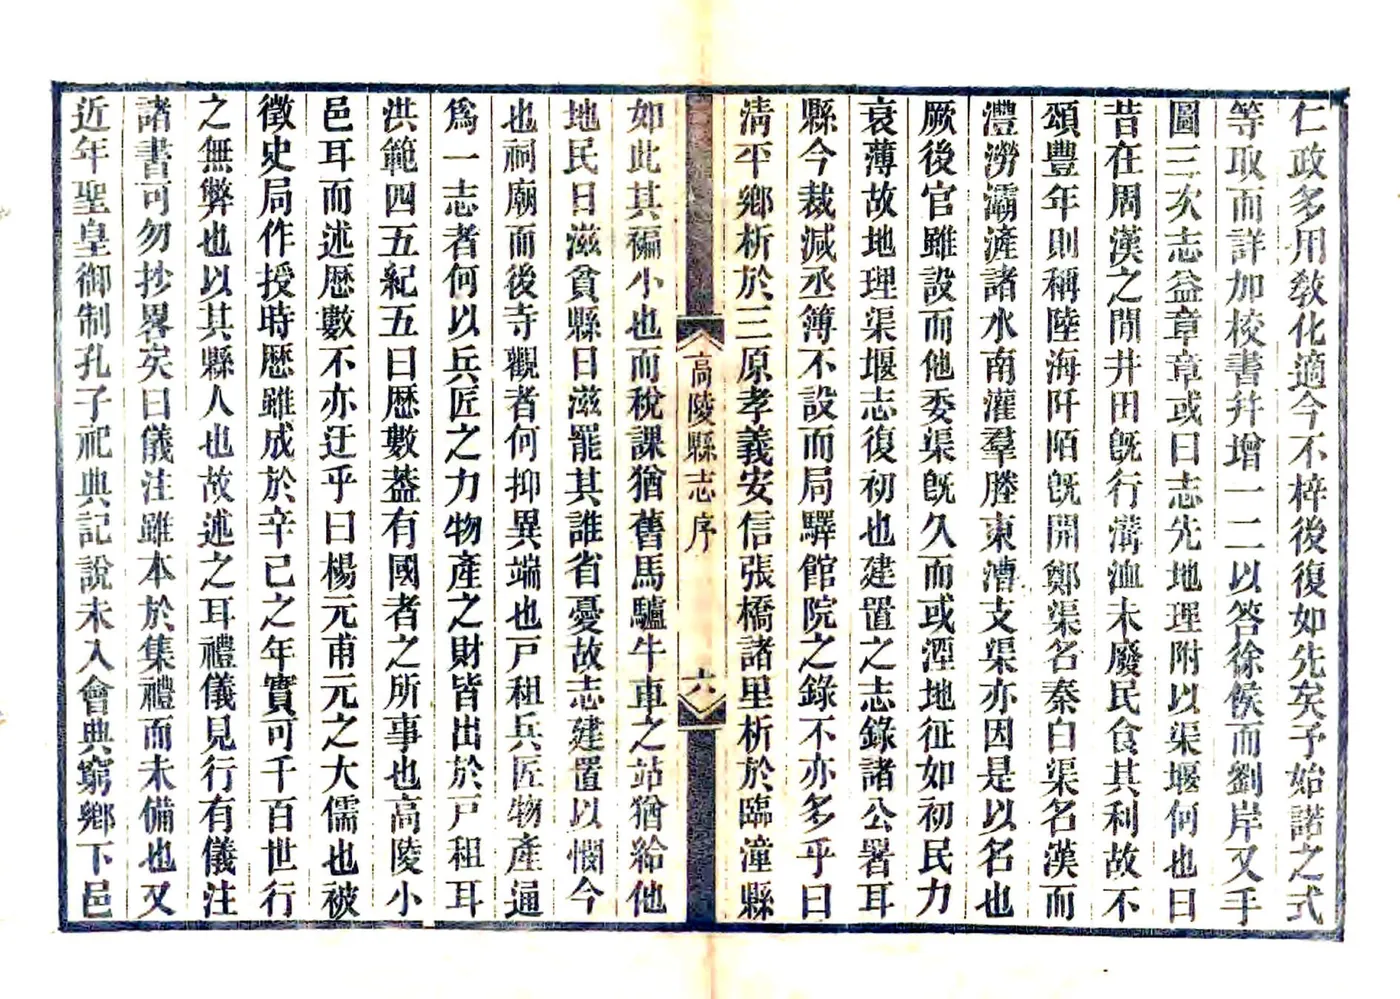 仁政多用敎化適今不梓後復如先矣予始諾之式
等取而詳加校書幷增一二以答徐侯而劉岸又手
圖三次志益章章或曰志先地理附以渠堰何也曰
昔在周漢之閒井田旣行溝洫未廢民食其利故不
頌豐年則稱陸海阡陌旣開鄭渠名秦白渠名漢而
灃澇灞滻諸水南灌羣塍東漕支渠亦因是以名也
厥後官雖設而他委渠旣久而或湮地征如初民力
衰薄故地理渠堰志復初也建置之志錄諸公署耳
縣今裁減丞簿不設而局驛館院之錄不亦多乎曰
淸平鄉析於三原孝義安信張橋諸里析於臨潼縣
高陵縣志序
六
如此其褊小也而稅課猶舊馬驢牛車之站猶給他
地民日滋貧縣日滋罷其誰省憂故志建置以憫今
也祠廟而後寺觀者何抑異端也戸租兵匠物產通
爲一志者何以兵匠之力物產之財皆出於戸租耳
洪範四五紀五曰歷數葢有國者之所事也高陵小
邑耳而述歷數不亦迂乎曰楊元甫元之大儒也被
徵史局作授時歷雖成於辛巳之年實可千百世行
之無弊也以其縣人也故述之耳禮儀見行有儀注
諸書可勿抄畧矣曰儀注雖本於集禮而未備也又
近年聖皇御制孔子祀典記說未入會典窮鄉下邑